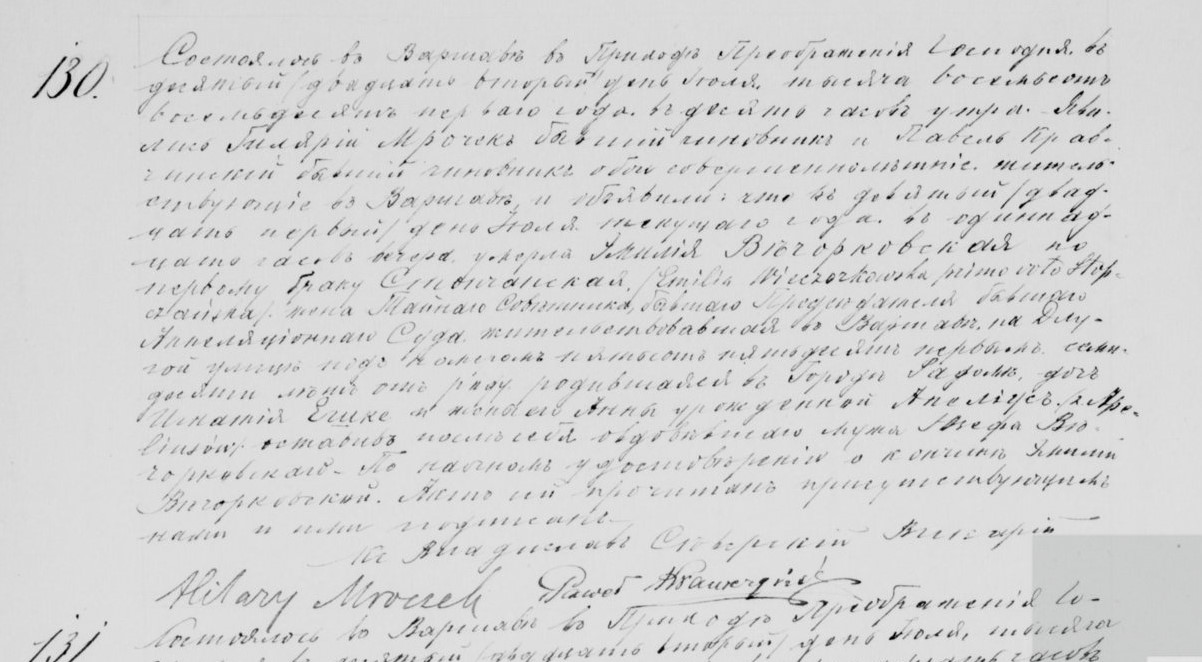 130.
Состоялось въ Варшавѣ въ Приходѣ Преображенія Господня. въ
десятый /двадцать вторый/ день Іюля, тысяча восемьсотъ
восемьдесятъ перваго года. въ десять часовъ утра. Яви-
лись Гилярій Мрочекъ бывшій чиновникъ и Павелъ Крав-
чинскій бывшій чиновникъ оба совершеннолѣтніе. житель-
ствующіе въ Варшавѣ, и объявили: что въ девятый /двад-
цать первый/ день Іюля текущаго года. въ одиннад-
цать часовъ вечера, умерла Эмилія Вѣчорковская по
первому браку Стопчанская, /Emilia Wieczorkowska primo voto Stop-
czańska/. жена Тайнаго Совѣтника, бывшаго Предсѣдателя бывшаго
Аппеляціоннаго Суда. жительствовавшая въ Варшавѣ, на Длу-
гой улицѣ подъ номеромъ пятьсотъ пятьдесятъ первымъ. семи-
десяти лѣтъ отъ роду. родившаяся въ Городѣ Радомѣ, дочь
Игнатія и жены его Анны урожденной /z Ape-
linsów/ оставивъ послѣ себя овдовѣвшаго мужа Іосифа Вѣ-
чорковскаго. По настномъ удостовѣреніи о кончинѣ Эмиліи
Вѣчорковской. Актъ сей прочитанъ присутствующимъ
нами и ими подписанъ.
Кс Владиславъ Сѣверскій Викарій
Hilary Mroczek Paweł Krawczyński
131 Состоялось въ Варшавѣ въ Приходѣ Преображенія Го-
десятый /двадцать вторый/ день Іюля, тысяча
часовъ